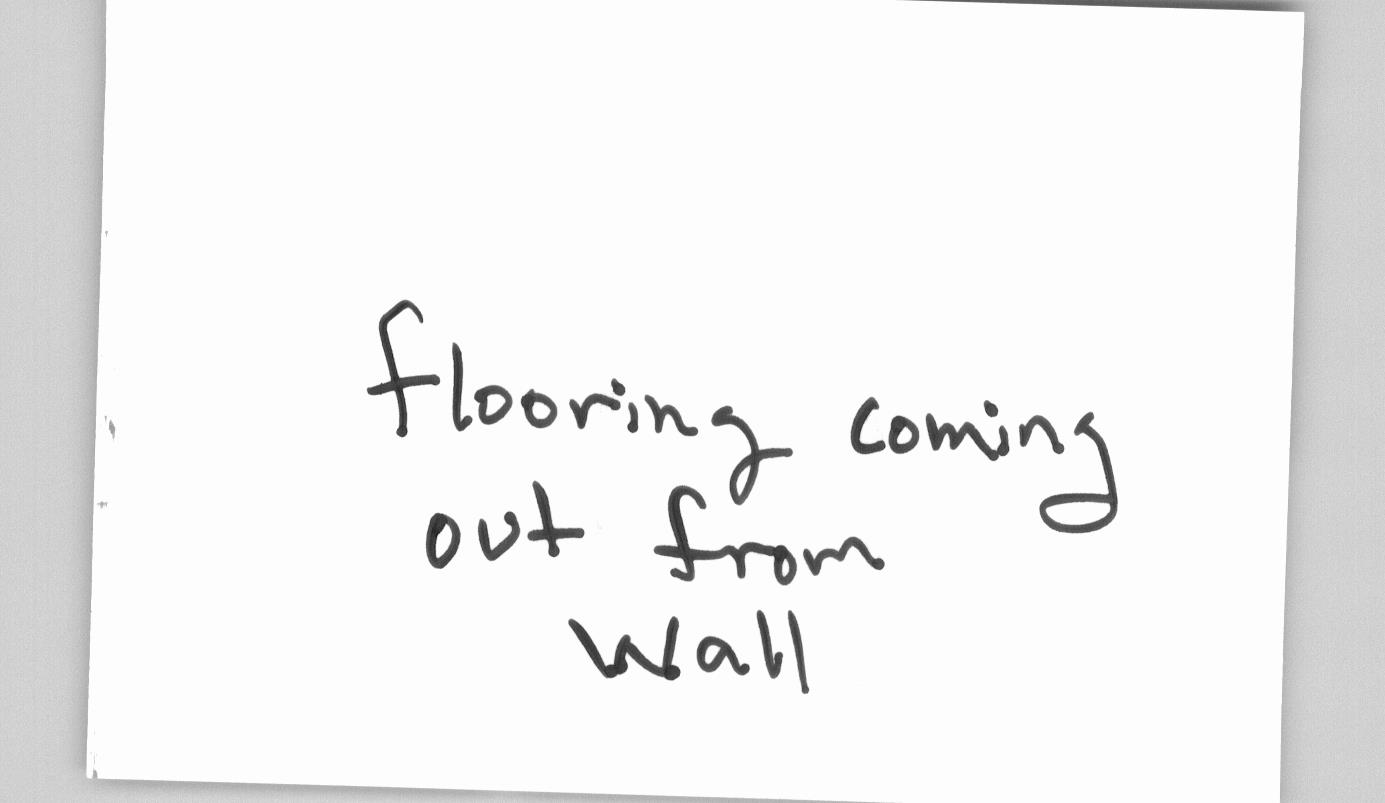 flooring coming
out from
wall